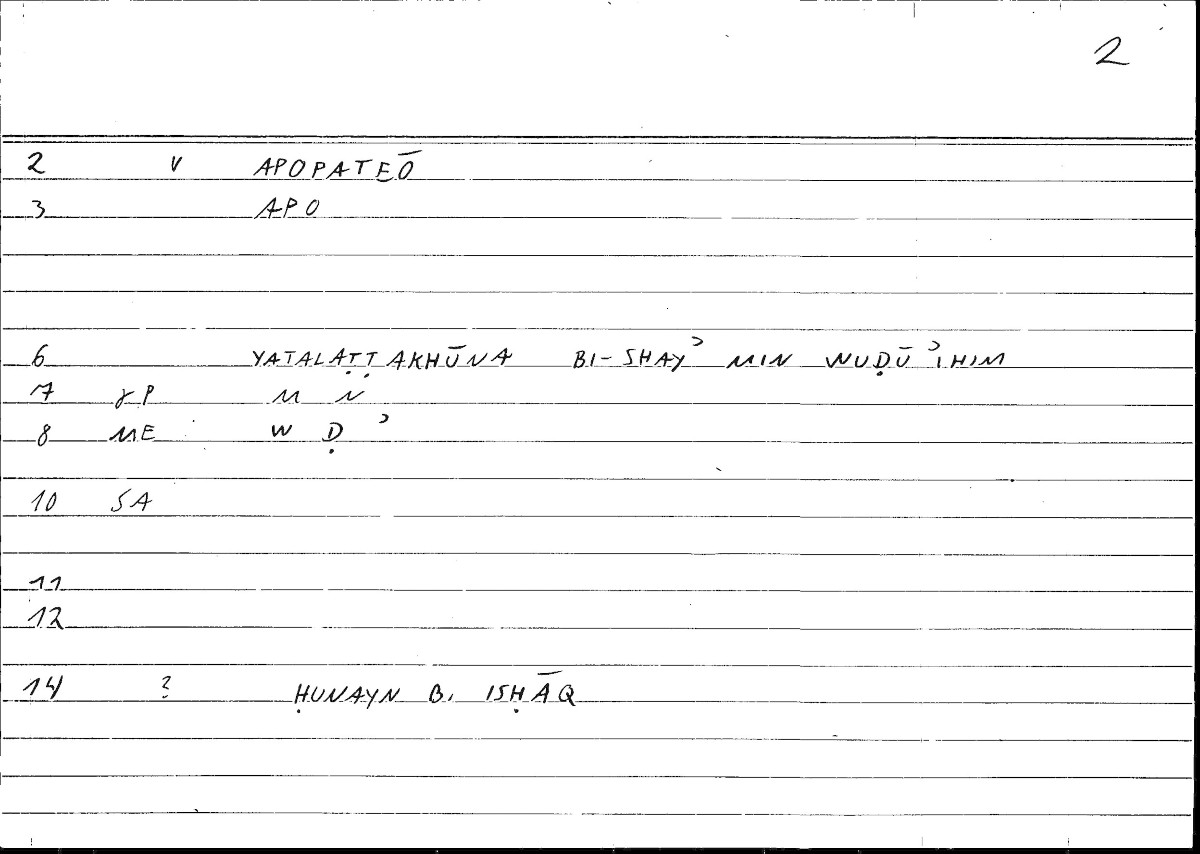 2
2 V APOPATEŌ
3 APO
6 YATALAṬṬAKHŪNA BI-SHAYʾ MIN WUḌŪʾIHIM
7 γP M N
8 ME W Ḍ ʾ
10 SA
11
12
14 ? ḤUNAYN B. ISḤĀQ